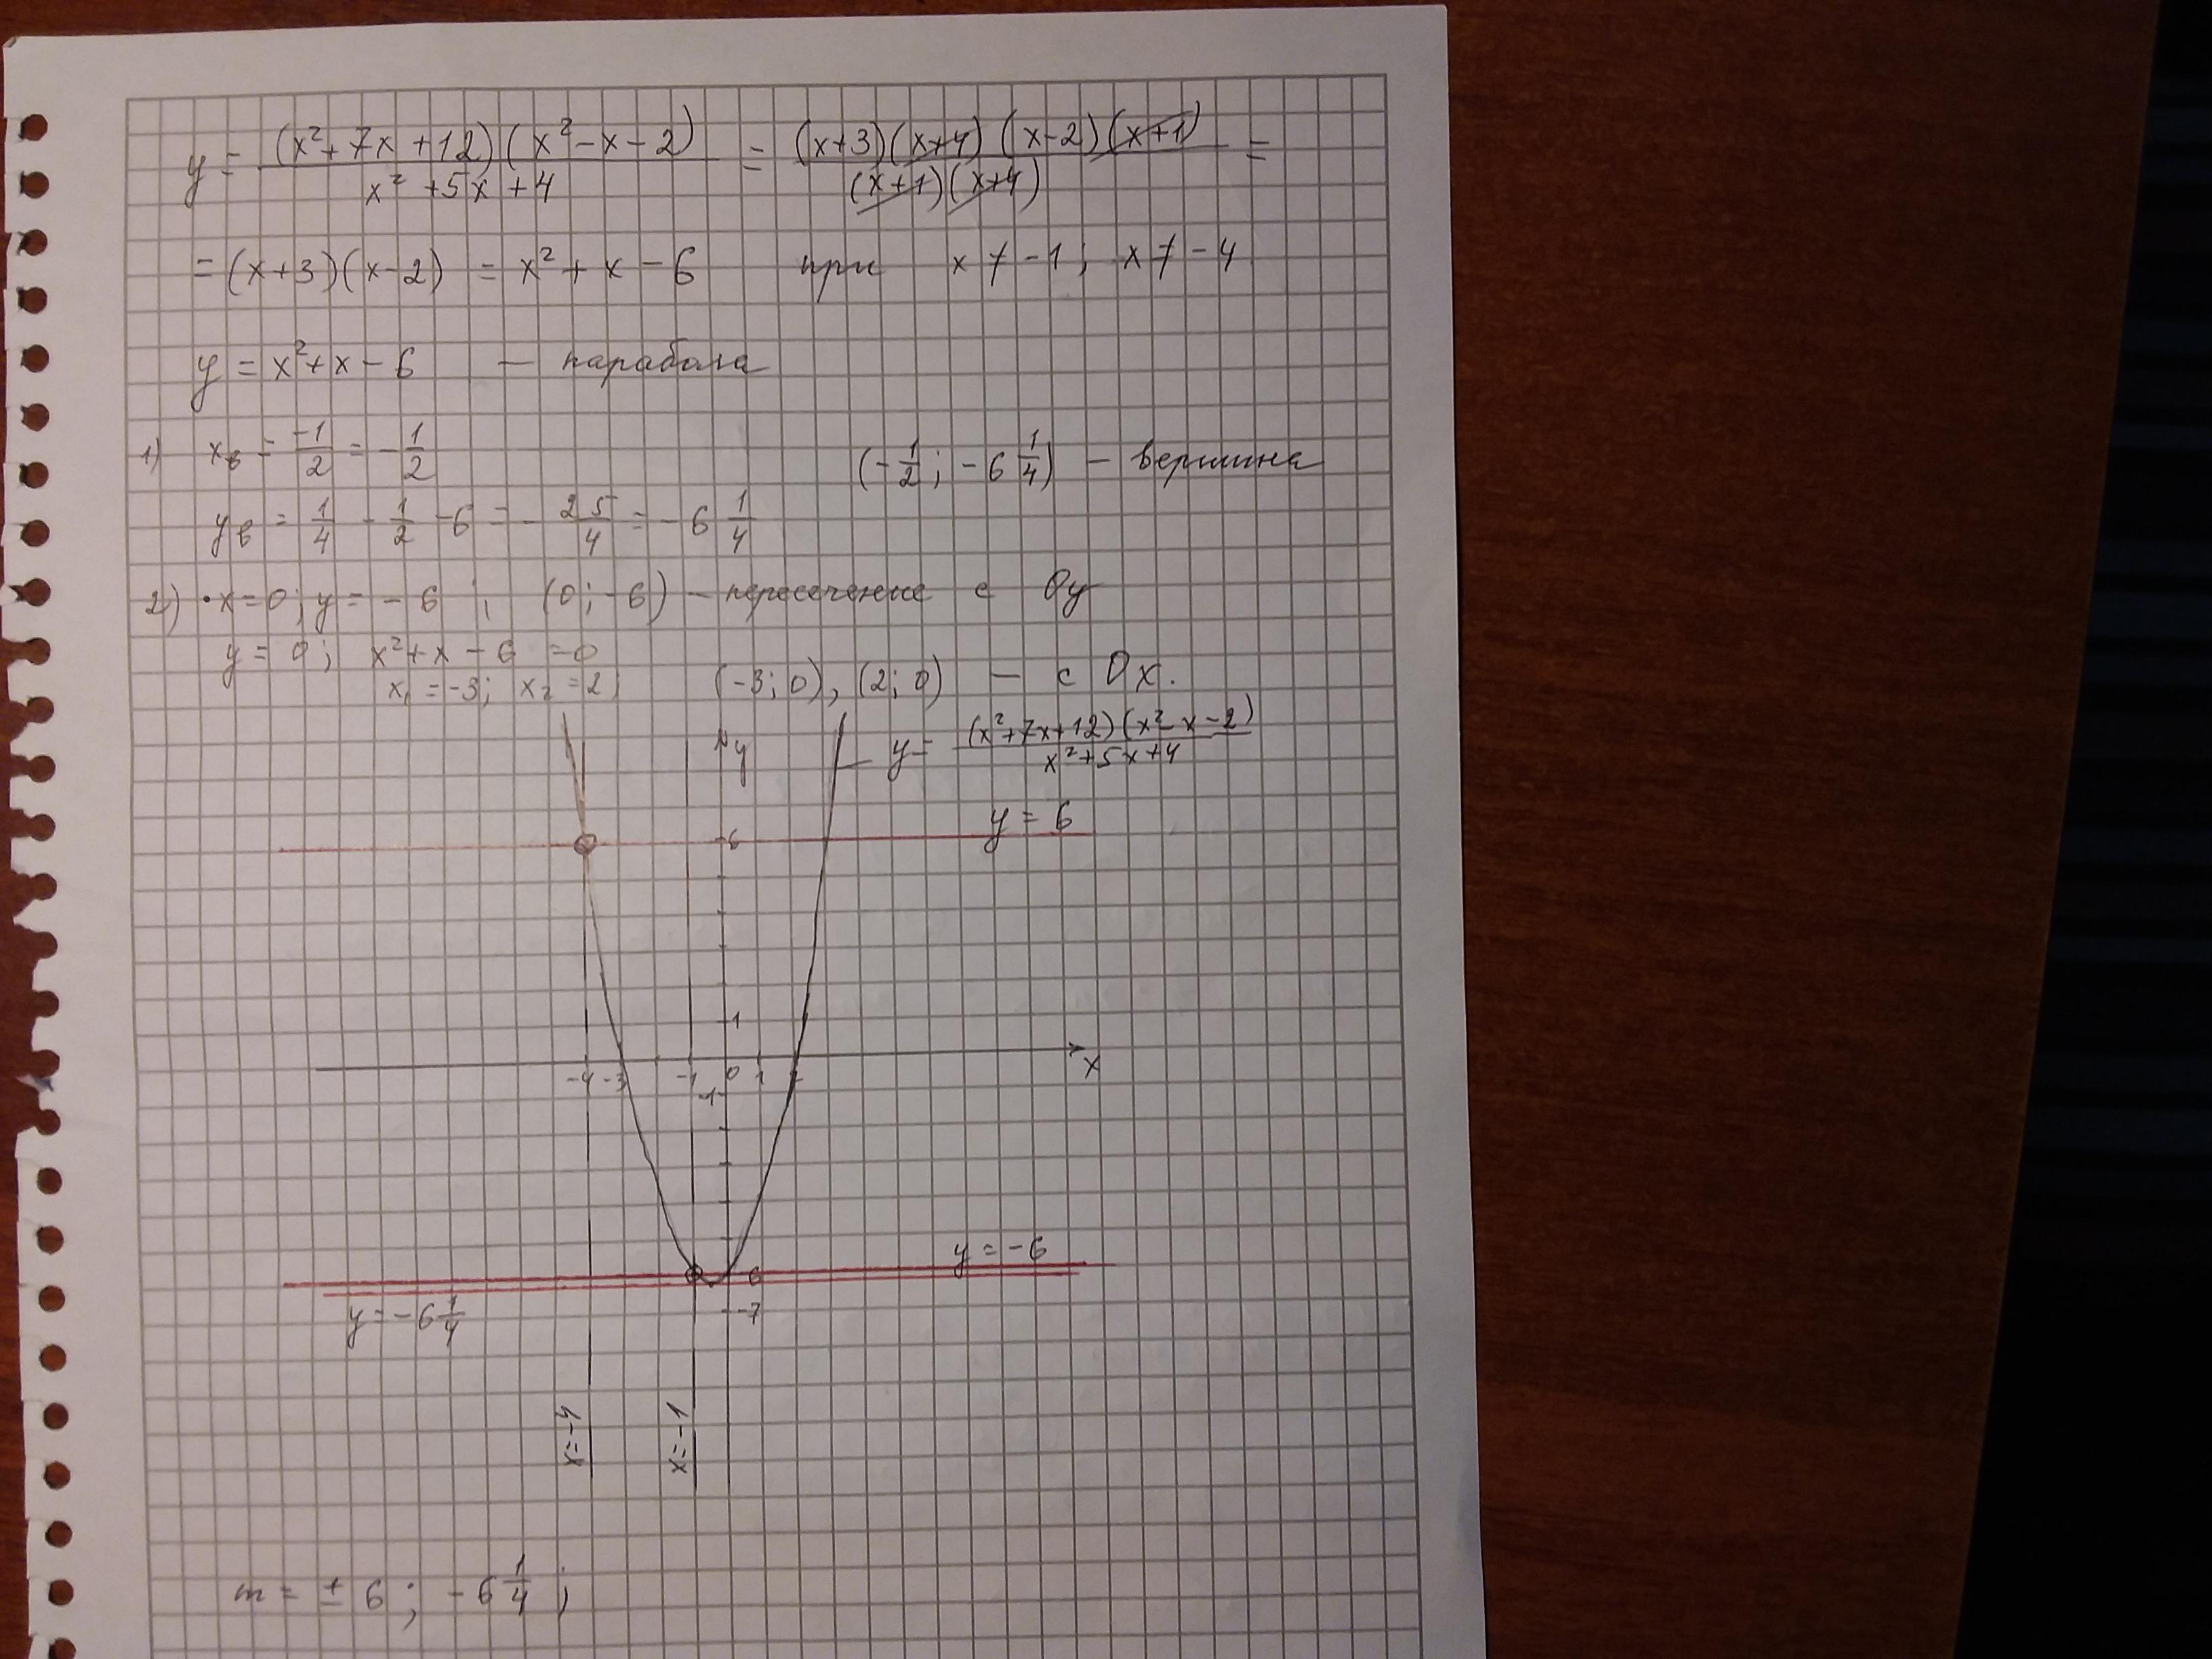 y = (x² + 7x + 12)(x² - x - 2) / x² + 5x + 4 = (x+3)(x+4)(x-2)(x+1) / (x+1)(x+4) =
= (x+3)(x-2) = x² + x - 6 при x ≠ -1; x ≠ -4
y = x² + x - 6 — парабола
1) xв = -1/2 = -1/2 (-1/2; -6 1/4) - вершина
yв = 1/4 - 1/2 - 6 = -25/4 = -6 1/4
2) • x=0; y = -6; (0; -6) - пересечение с Oy
y = 0; x² + x - 6 = 0
x₁ = -3; x₂ = 2; (-3; 0), (2; 0) — с Ox.
y y = (x²+7x+12)(x²-x-2) / x²+5x+4
y = 6
6
1
-4 -3 -1 0 1 2 x
-1
y = -6
-6
y = -6 1/4
-7
x=-4 x=-1
m = ± 6; -6 1/4;